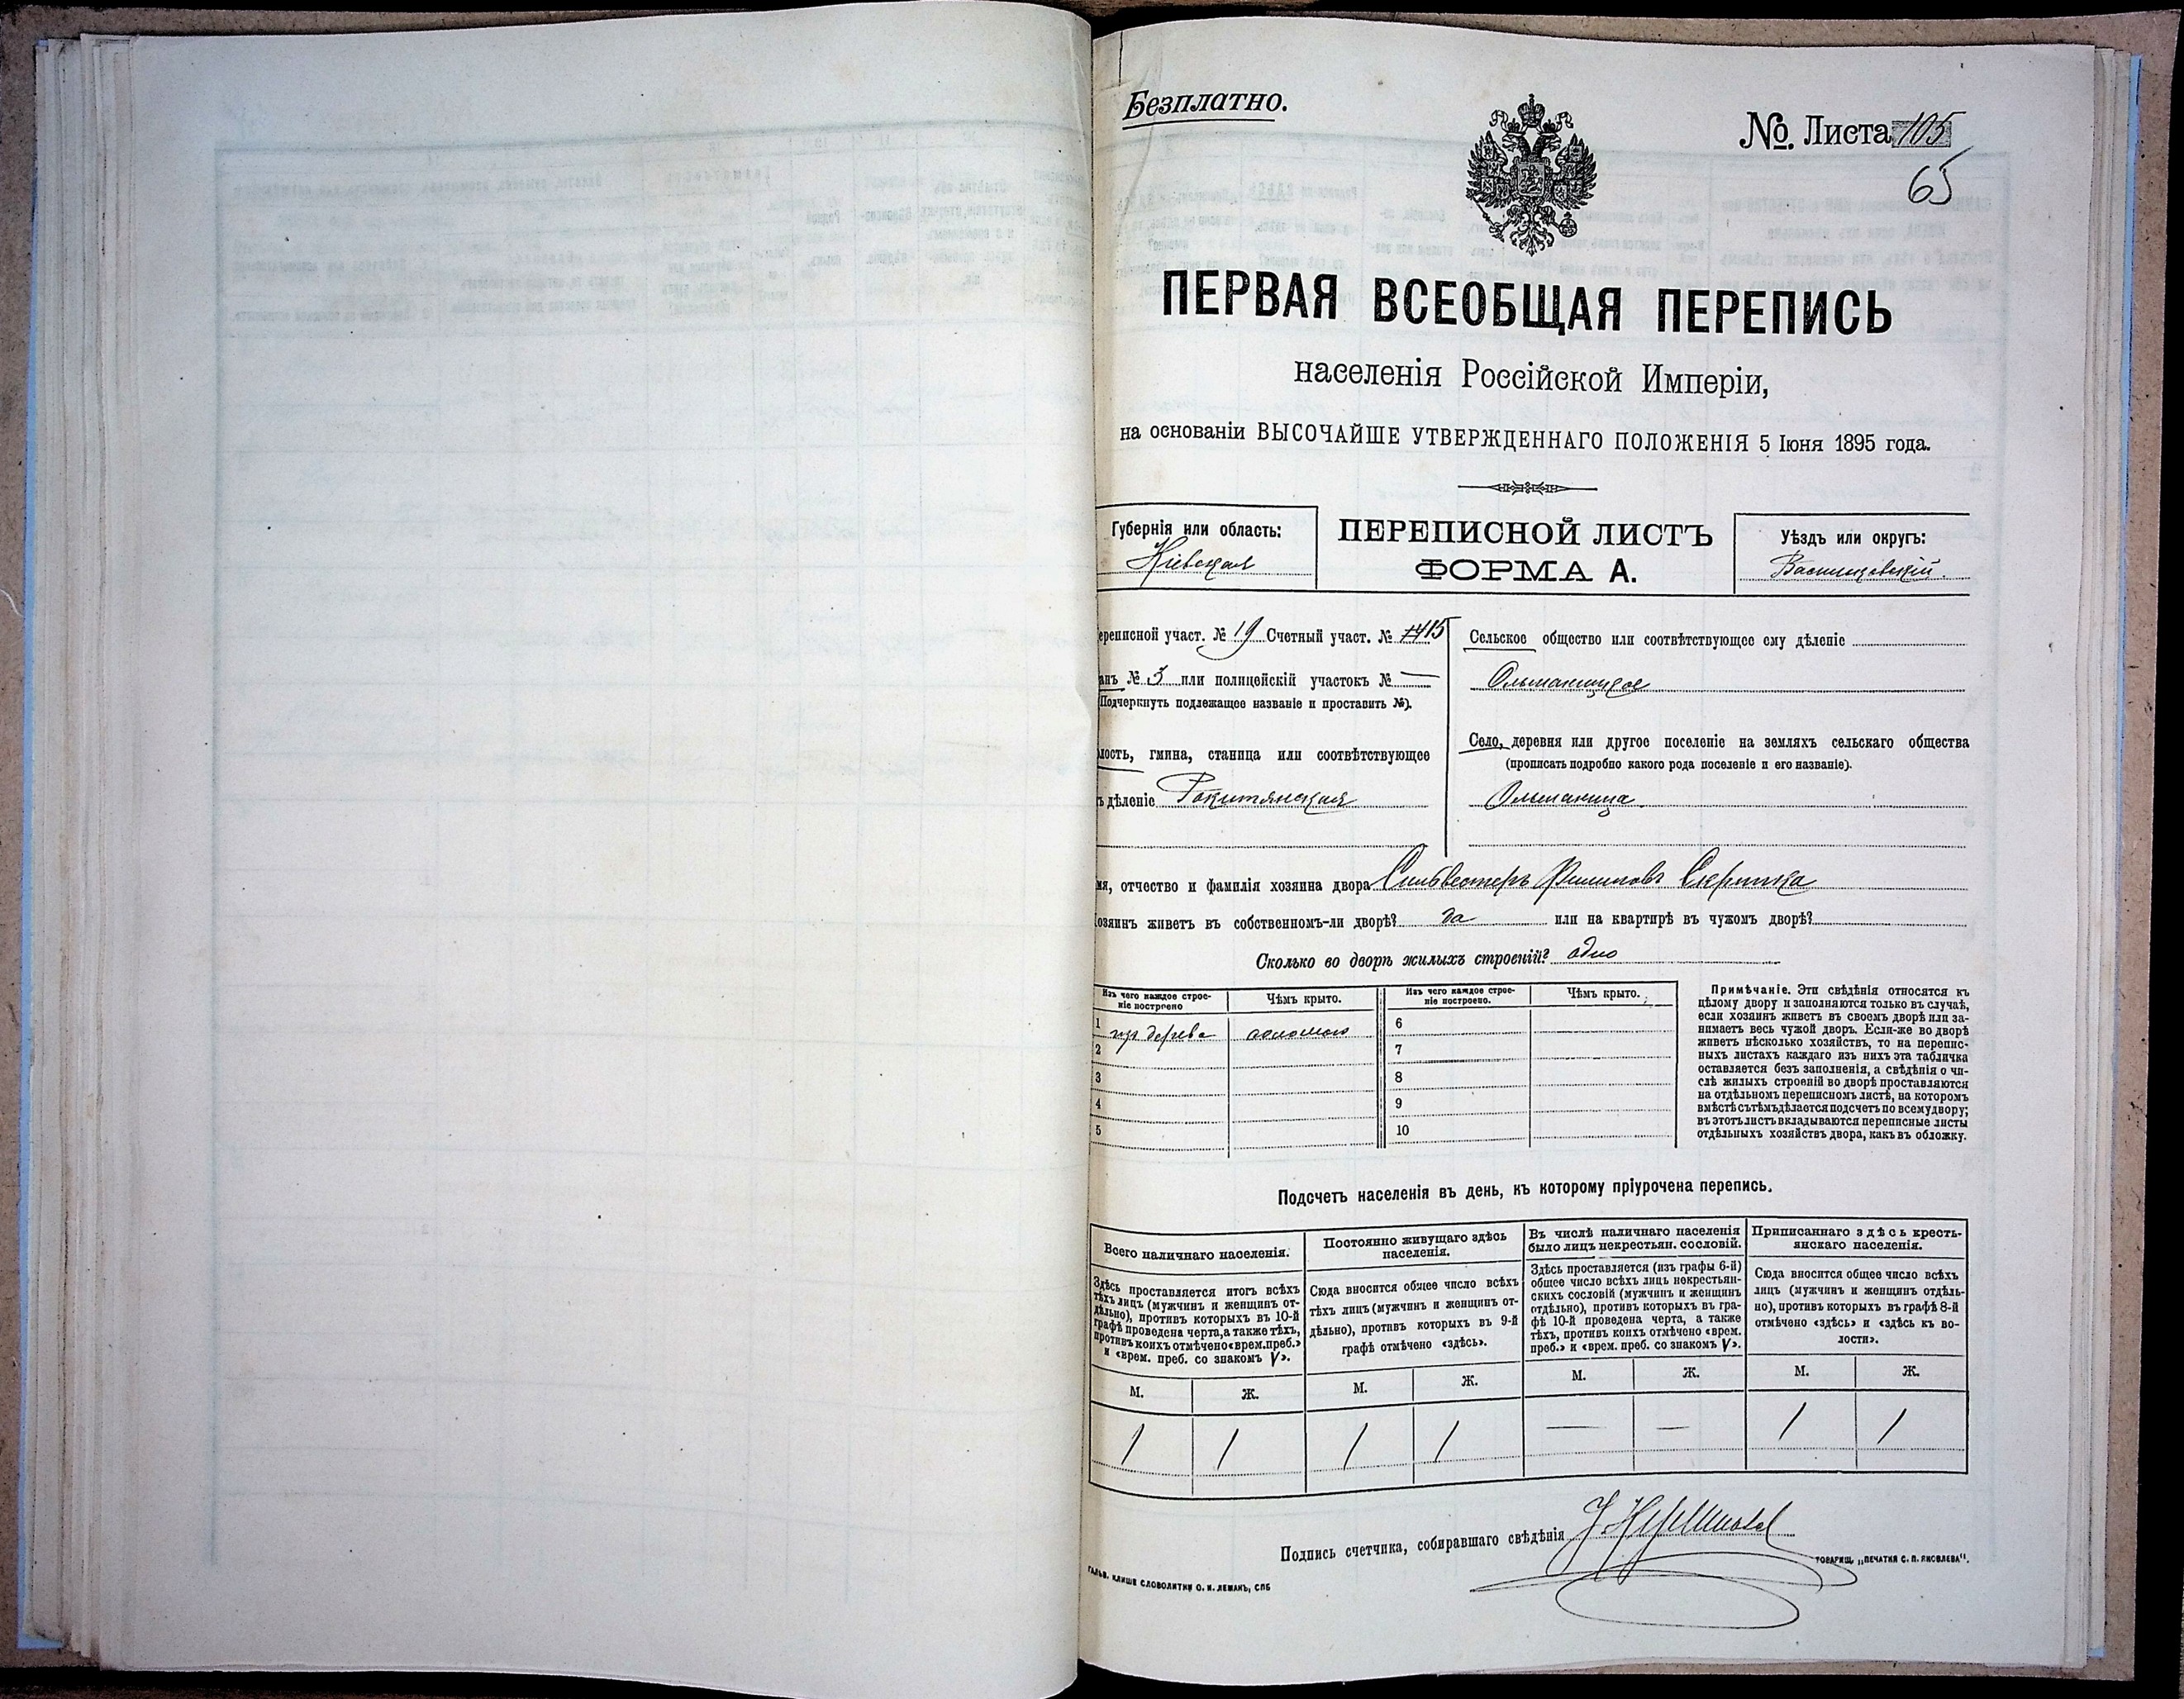 Безплатно.
№. Листа 105
65
ПЕРВАЯ ВСЕОБЩАЯ ПЕРЕПИСЬ
населенія Россійской Имперіи,
на основаніи ВЫСОЧАЙШЕ УТВЕРЖДЕННАГО ПОЛОЖЕНІЯ 5 Іюня 1895 года.
Губернія или область:
Кіевская
ПЕРЕПИСНОЙ ЛИСТЪ
ФОРМА А.
Уѣздъ или округъ:
Васильковскій.
ереписной участ. № 19 Счетный участ. № 15
анъ № 3 или полицейскій участокъ № —
(Подчеркнуть подлежащее названіе и проставить №).
лость, гмина, станица или соотвѣтствующее
ъ дѣленіе Рокитянская
Сельское общество или соотвѣтствующее ему дѣленіе
Ольшаницкое
Село, деревня или другое поселеніе на земляхъ сельскаго общества
(прописать подробно какого рода поселеніе и его названіе).
Ольшаница
мя, отчество и фамилія хозяина двора Сильвестеръ Филиповъ Скрипка
озяинъ живетъ въ собственномъ-ли дворѣ? да или на квартирѣ въ чужомъ дворѣ?
Сколько во дворѣ жилыхъ строеній? одно
Изъ чего каждое строе-
ніе построено
Чѣмъ крыто.
Изъ чего каждое строе-
ніе построено.
Чѣмъ крыто.
1 изъ дерева соломою
2
3
4
5
6
7
8
9
10
Примѣчаніе. Эти свѣдѣнія относятся къ
цѣлому двору и заполняются только въ случаѣ,
если хозяинъ живетъ въ своемъ дворѣ или за-
нимаетъ весь чужой дворъ. Если-же во дворѣ
живетъ нѣсколько хозяйствъ, то на перепис-
ныхъ листахъ каждаго изъ нихъ эта табличка
оставляется безъ заполненія, а свѣдѣнія о чи-
слѣ жилыхъ строеній во дворѣ проставляются
на отдѣльномъ переписномъ листѣ, на которомъ
вмѣстѣ съ тѣмъ дѣлается подсчетъ по всему двору;
въ этотъ листъ вкладываются переписные листы
отдѣльныхъ хозяйствъ двора, какъ въ обложку.
Подсчетъ населенія въ день, къ которому пріурочена перепись.
Всего наличнаго населенія.
Здѣсь проставляется итогъ всѣхъ
тѣхъ лицъ (мужчинъ и женщинъ от-
дѣльно), противъ которыхъ въ 10-й
графѣ проведена черта, а также тѣхъ,
противъ коихъ отмѣчено «врем. преб.»
и «врем. преб. со знакомъ V».
Постоянно живущаго здѣсь
населенія.
Сюда вносится общее число всѣхъ
тѣхъ лицъ (мужчинъ и женщинъ от-
дѣльно), противъ которыхъ въ 9-й
графѣ отмѣчено «здѣсь».
Въ числѣ наличнаго населенія
было лицъ некрестьян. сословій.
Здѣсь проставляется (изъ графы 6-й)
общее число всѣхъ лицъ некрестьян-
скихъ сословій (мужчинъ и женщинъ
отдѣльно), противъ которыхъ въ гра-
фѣ 10-й проведена черта, а также
тѣхъ, противъ коихъ отмѣчено «врем.
преб.» и «врем. преб. со знакомъ V».
Приписаннаго здѣсь кресть-
янскаго населенія.
Сюда вносится общее число всѣхъ
лицъ (мужчинъ и женщинъ отдѣль-
но), противъ которыхъ въ графѣ 8-й
отмѣчено «здѣсь» и «здѣсь къ во-
лости».
М. Ж. М. Ж. М. Ж. М. Ж.
1 1 1 1 — — 1 1
Подпись счетчика, собиравшаго свѣдѣнія
ГАЛЬВ. КЛИШЕ СЛОВОЛИТНИ О. И. ЛЕМАНЪ, СПБ
ТОВАРИЩ. „ПЕЧАТНЯ С. П. ЯКОВЛЕВА“.